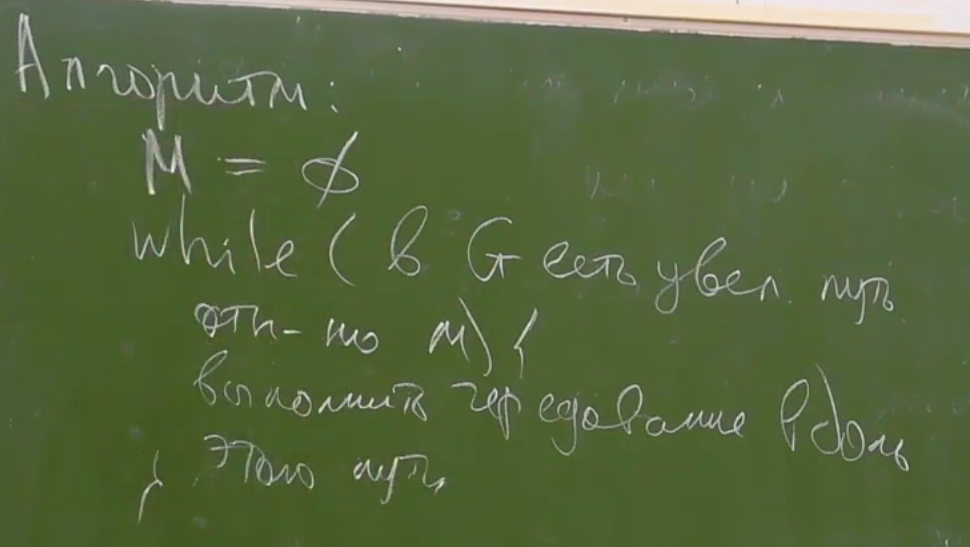 Алгоритм:
M = ∅
while ( в G есть увел. путь
отн-но M) {
выполнить чередование вдоль
этого пути
}